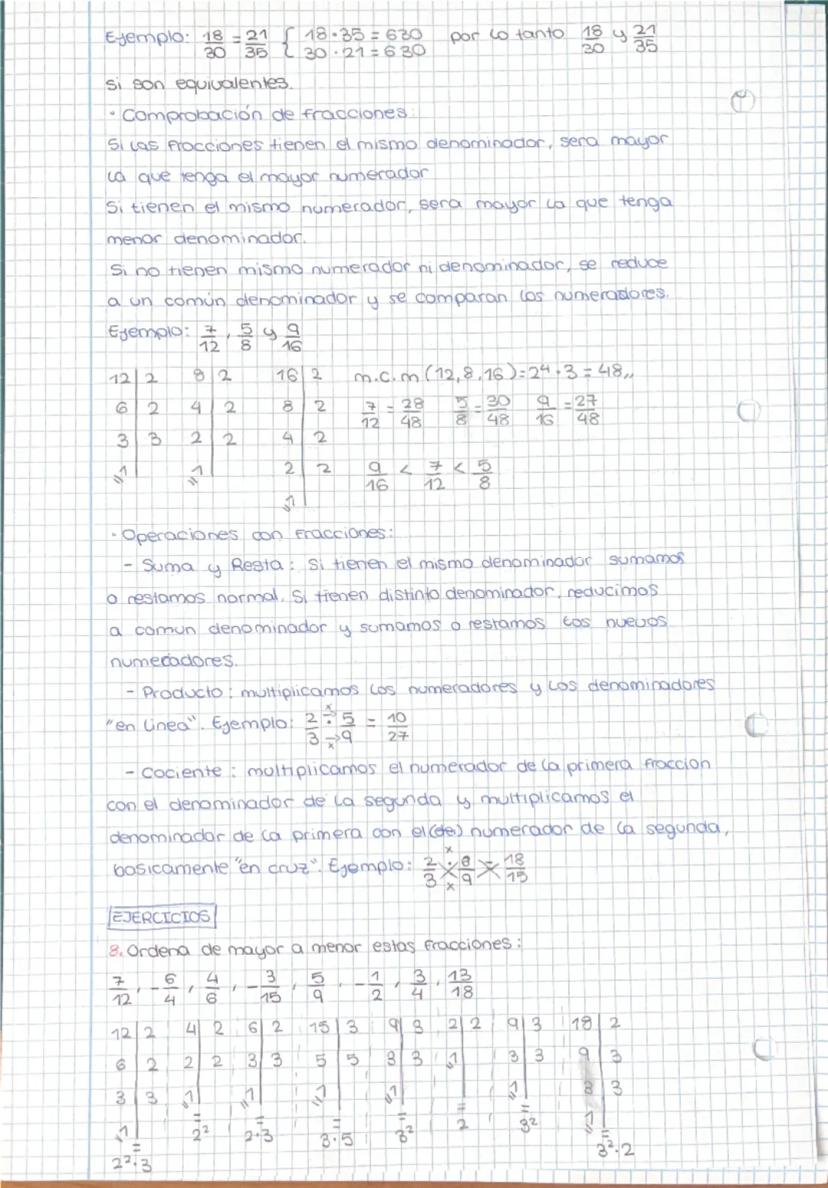 Ejemplo: 18/30 = 21/35 { 18·35 = 630 30·21 = 630 por lo tanto 18/30 y 21/35
si son equivalentes.
· Comprobación de fracciones:
Si las fracciones tienen el mismo denominador, sera mayor
la que tenga el mayor numerador
Si tienen el mismo numerador, sera mayor la que tenga
menor denominador.
Si no tienen mismo numerador ni denominador, se reduce
a un común denominador y se comparan los numeradores.
Ejemplo: 7/12, 5/8 y 9/16
12|2 8|2 16|2 m.c.m (12,8,16)=2⁴·3=48,,
6|2 4|2 8|2 7/12 = 28/48 5/8 = 30/48 9/16 = 27/48
3|3 2|2 4|2
1 1 2|2 9/16 < 7/12 < 5/8
1
· Operaciones con fracciones:
- Suma y Resta: Si tienen el mismo denominador sumamos
o restamos normal. Si tienen distinto denominador, reducimos
a comun denominador y sumamos o restamos los nuevos
numeradores.
- Producto: multiplicamos los numeradores y los denominadores
"en linea". Ejemplo: 2/3 · 5/9 = 10/27
- Cociente: multiplicamos el numerador de la primera fraccion
con el denominador de la segunda y multiplicamos el
denominador de la primera con el (de) numerador de la segunda,
basicamente "en cruz". Ejemplo: 2/3 : /9 = 18/15
EJERCICIOS
8. Ordena de mayor a menor estas fracciones:
7/12, -6/4, 4/6, -3/15, 5/9, -1/2, 3/4, 13/18
12|2 4|2 6|2 15|3 9|3 2|2 9|3 18|2
6|2 2|2 3|3 5|5 3|3 1 3|3 9|3
3|3 1 1 1 1 1 3|3
1 = 2² = 2·3 = 3·5 = 3² = 2 = 3² 1
= 2²·3 = 3²·2